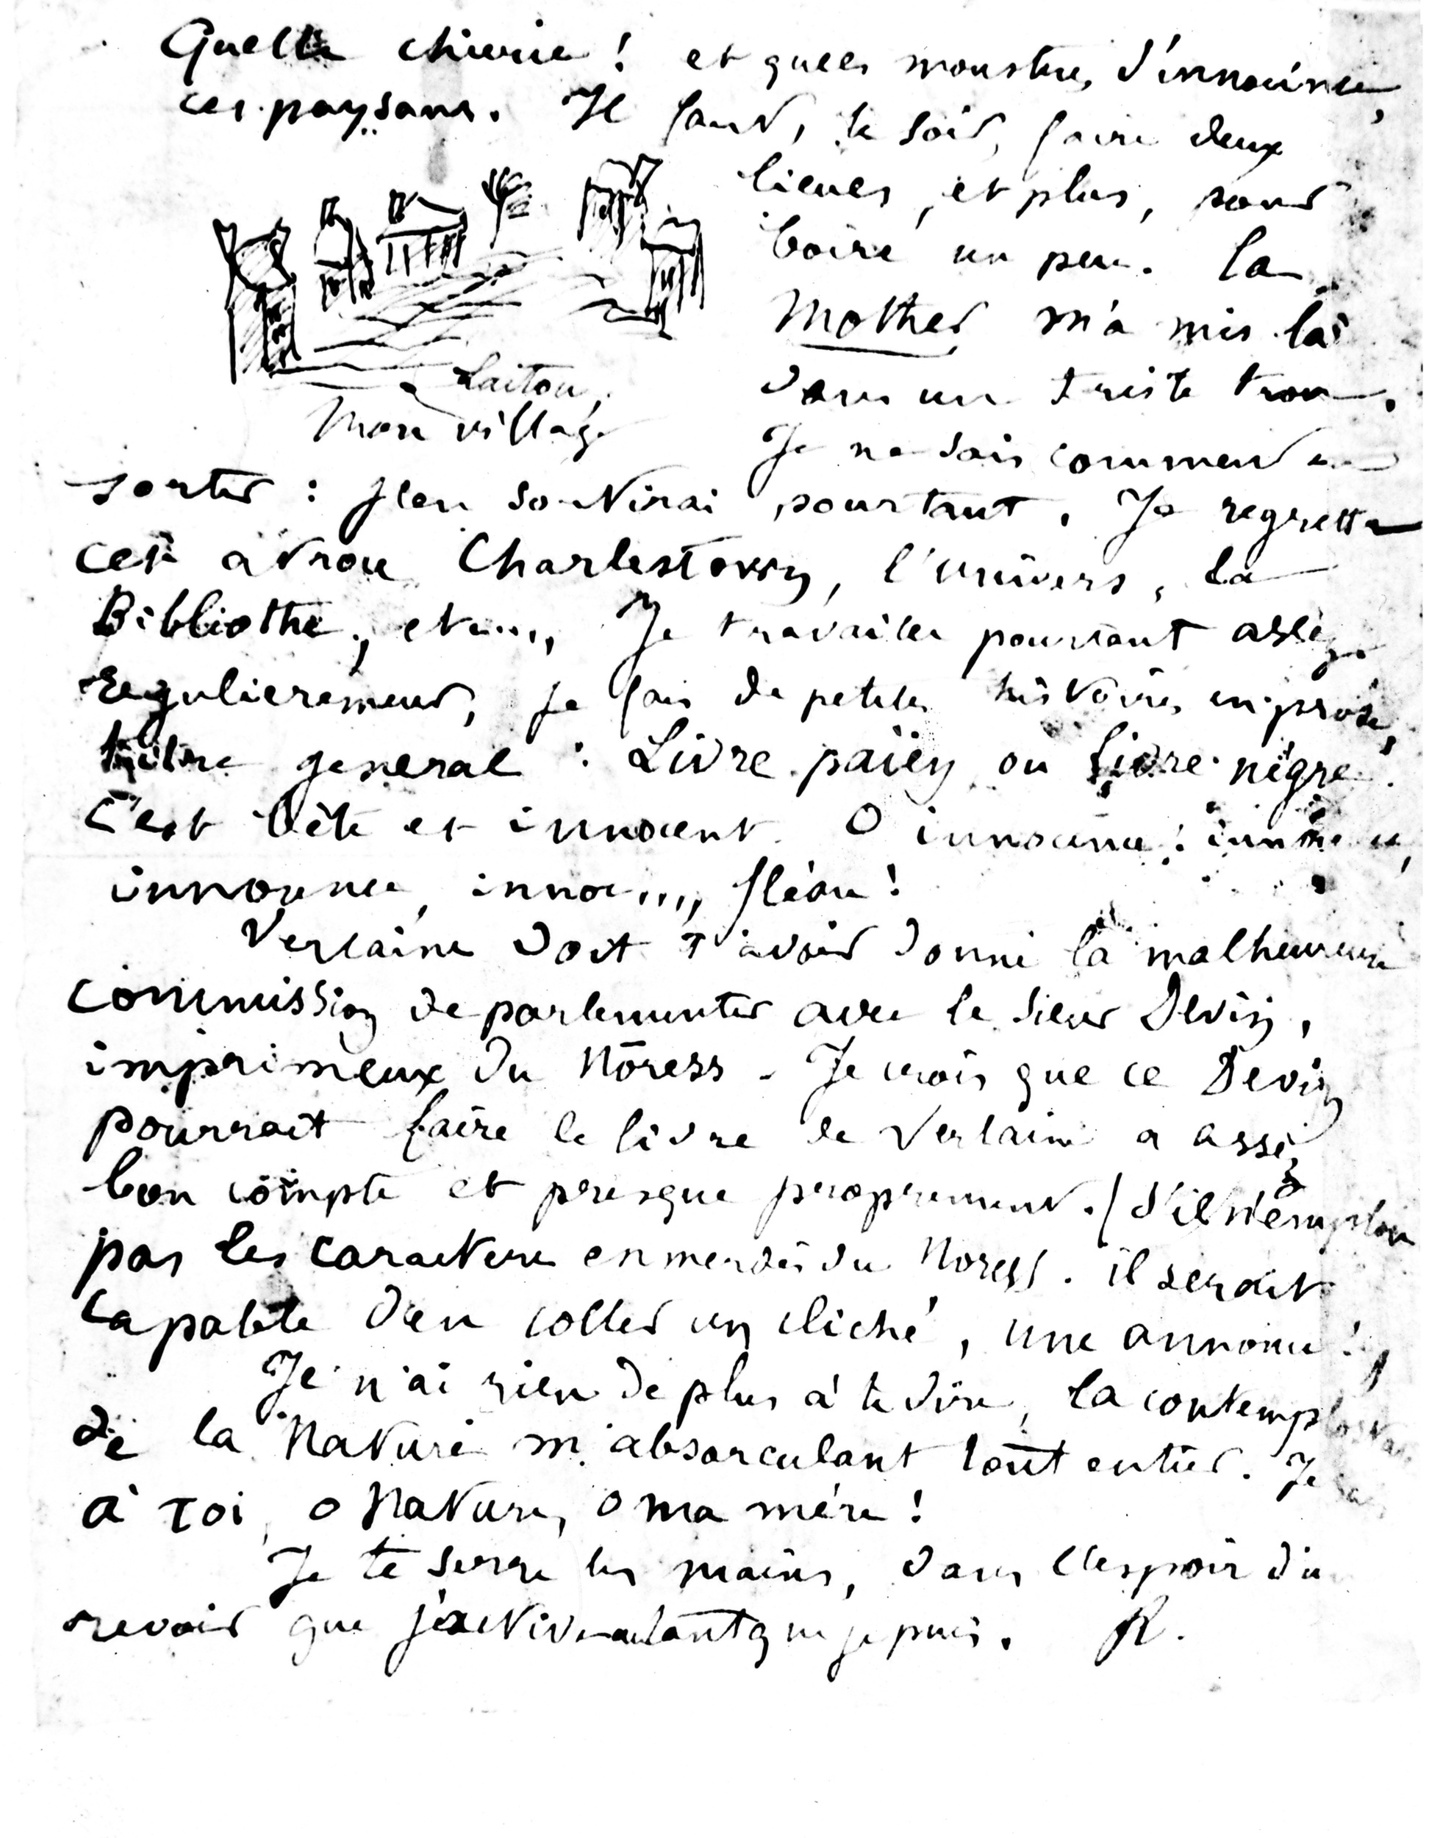 Quelle chierie ! et quels monstres d'innocince,
ces paysans. Il faut, le soir, faire deux
lieues, et plus, pour
boire un peu. La
Mother m'a mis là
dans un triste trou.
Laïtou,
Mon village
Je ne sais comment en
sortir : j'en sortirai pourtant. Je regrette
cet atroce Charlestown, l'Univers, la
Bibliothè., etc.... Je travaille pourtant assez
régulièrement, je fais de petites histoires en prose,
titre général : Livre païen, ou Livre nègre.
C'est bête et innocent. O innocence ! innocence,
innocence, innoc..., fléau !
Verlaine doit t'avoir donné la malheureuse
commission de parlementer avec le sieur Devin,
imprimeux du Nôress. Je crois que ce Devin
pourrait faire le livre de Verlaine à assez
bon compte et presque proprement. (S'il n'emploie
pas les caractères emmerdés du Noress. il serait
capable d'en coller un cliché, une annonce !)
Je n'ai rien de plus à te dire, la contemplostate
de la Nature m'absorculant tout entier. Je suis
à toi, o Nature, o ma mère !
Je te serre les mains, dans l'espoir d'un
revoir que j'active autant que je puis. R.